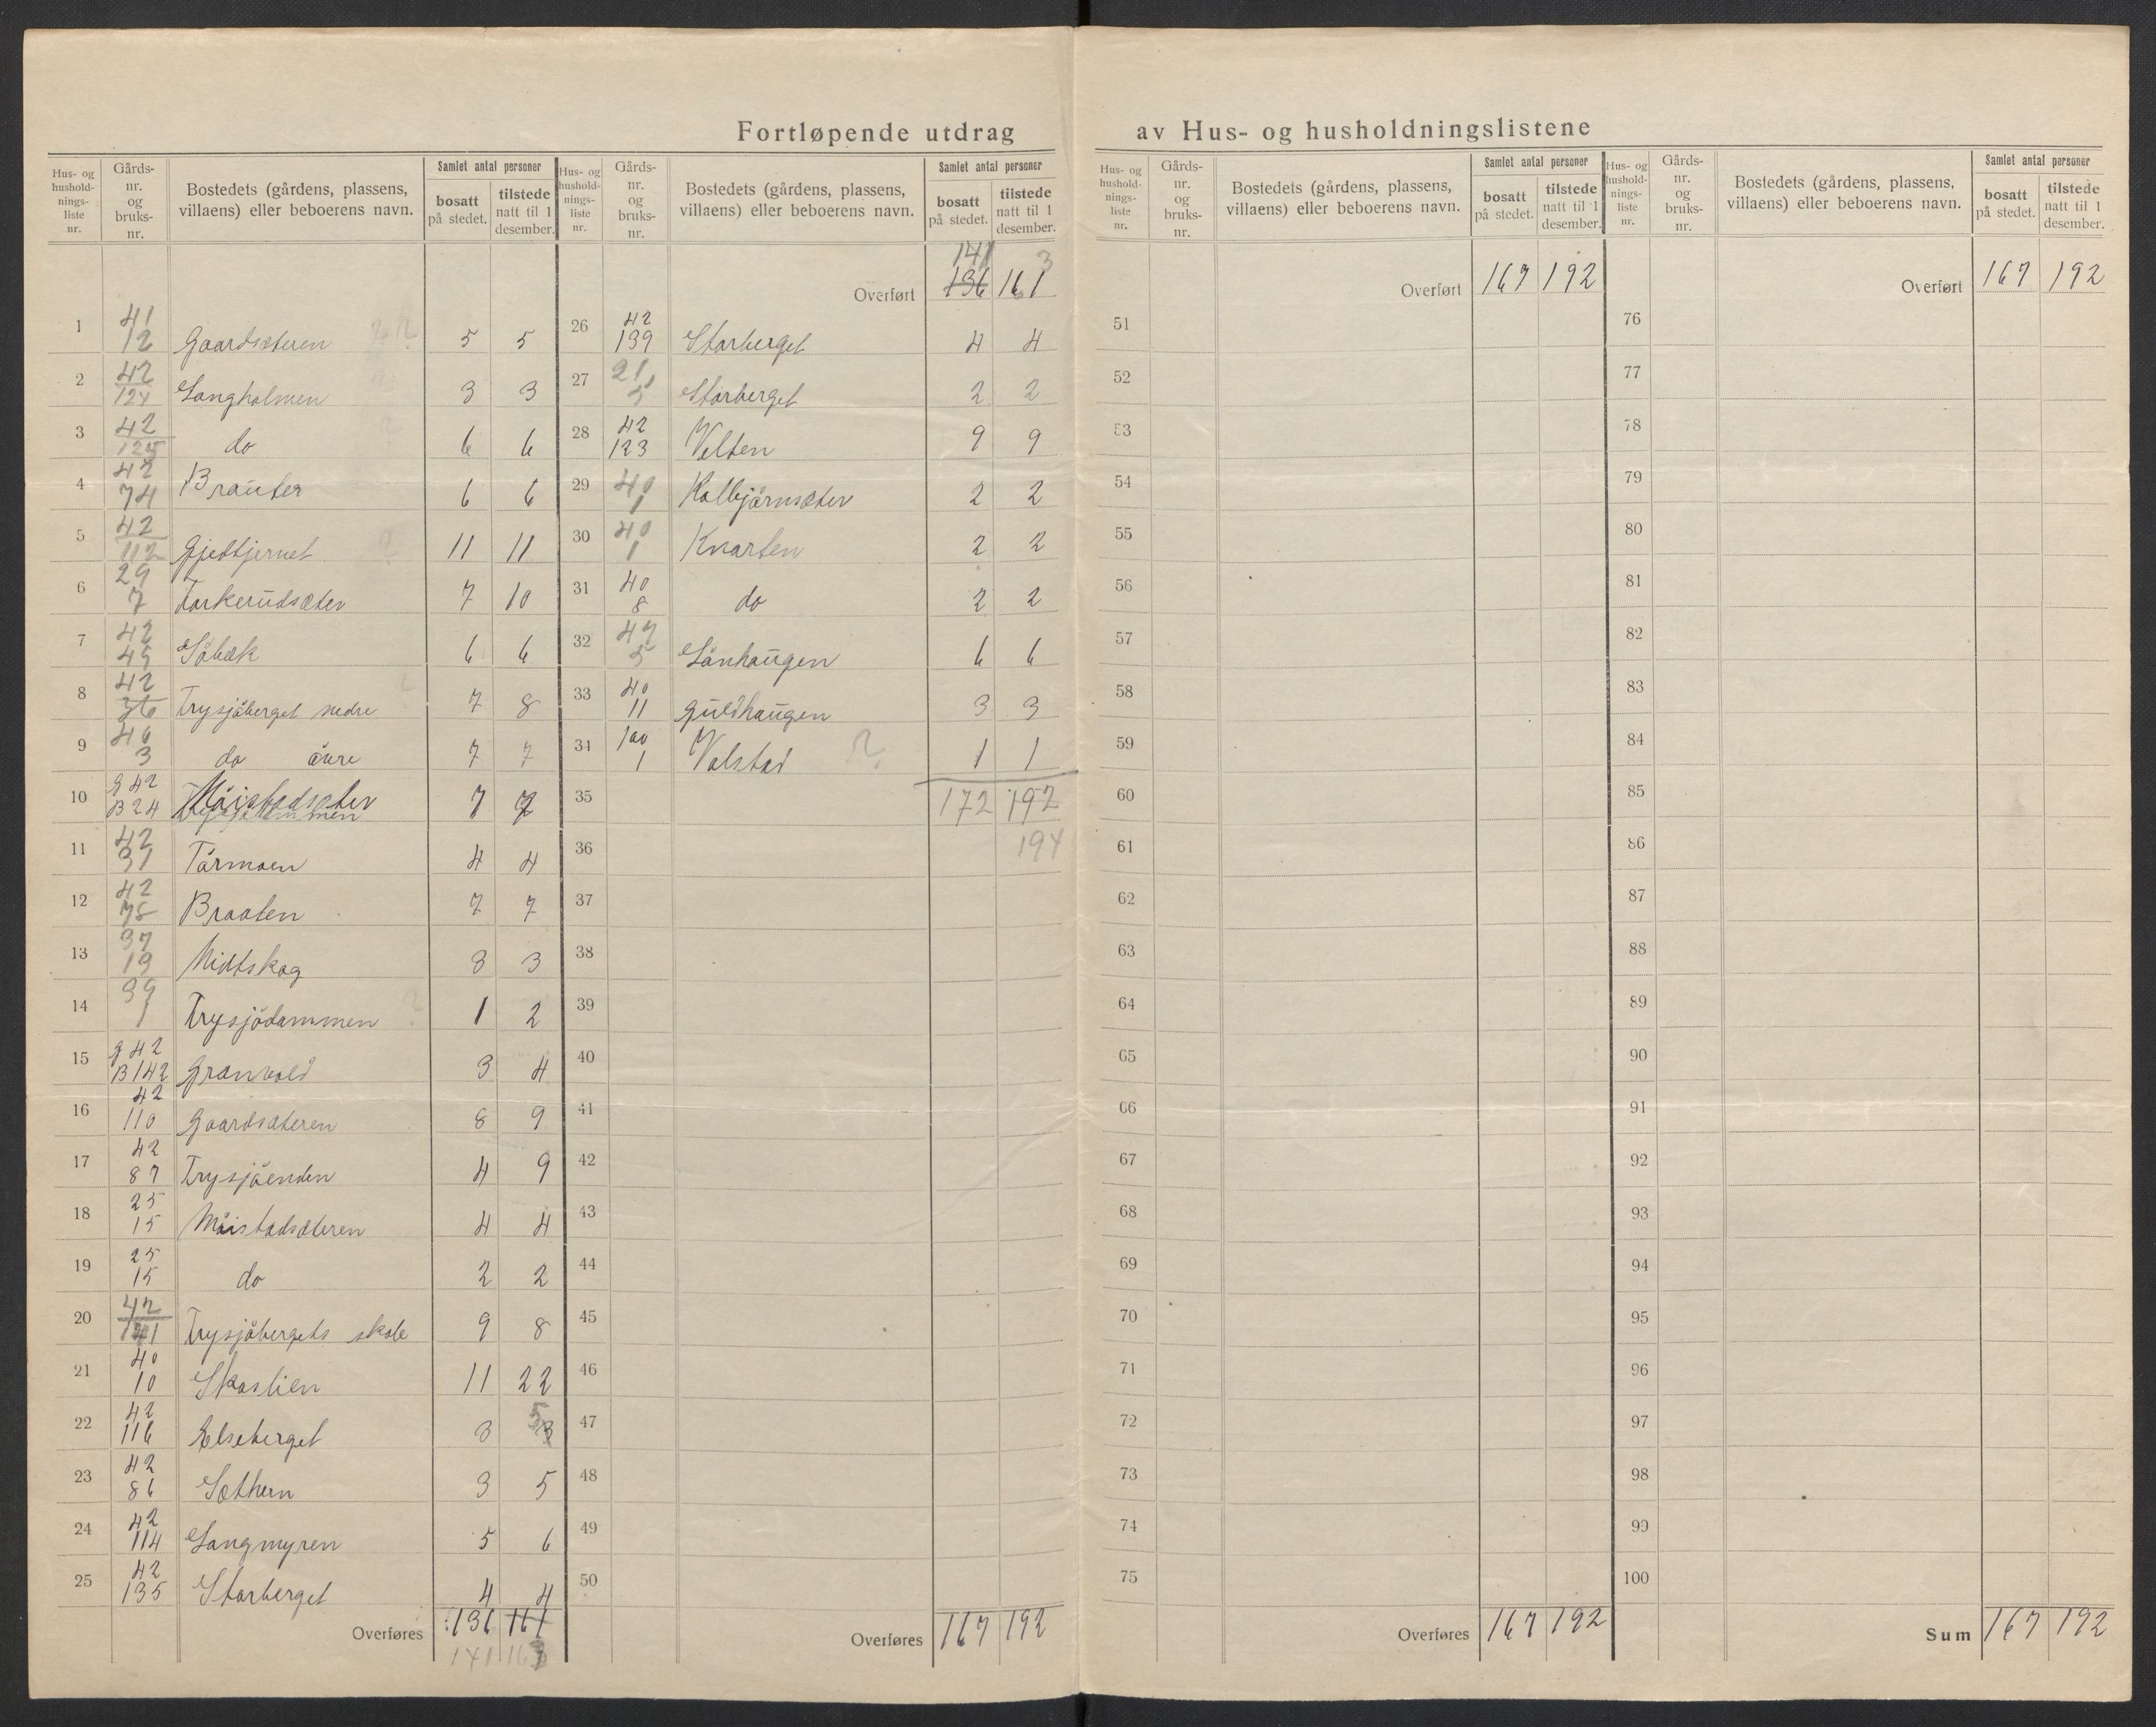 Fortløpende utdrag av Hus- og husholdningslistene
Hus- og hushold- nings- liste nr. | Gårds- nr. og bruks- nr. | Bostedets (gårdens, plassens, villaens) eller beboerens navn. | Samlet antal personer | bosatt på stedet. | tilstede natt til 1 desember.
1 | 41 12 | Gaardsæteren | 5 | 5
2 | 42 124 | Langholmen | 3 | 3
3 | 42 125 | do | 6 | 6
4 | 42 74 | Brauter | 6 | 6
5 | 42 112 | Gjedtjernet | 11 | 11
6 | 29 7 | Torkerudsæter | 7 | 10
7 | 42 49 | Söbæk | 6 | 6
8 | 42 36 | Trysjöberget nedre | 7 | 8
9 | 46 3 | do övre | 7 | 7
10 | G 42 B 24 | Möistadsæter | 7 | 7
11 | 42 31 | Törmoen | 4 | 4
12 | 42 78 | Braaten | 7 | 7
13 | 37 19 | Midtskog | 3 | 3
14 | 39 1 | Trysjödammen | 1 | 2
15 | G 42 B 142 | Granvold | 3 | 4
16 | 42 110 | Gaardsæteren | 8 | 9
17 | 42 87 | Trysjöenden | 4 | 9
18 | 25 15 | Möistadsæteren | 4 | 4
19 | 25 15 | do | 2 | 2
20 | 42 141 | Trysjöbergets skole | 9 | 8
21 | 40 10 | Skaslien | 11 | 22
22 | 42 116 | Elseberget | 3 | 5
23 | 42 86 | Sæthern | 3 | 5
24 | 42 114 | Langmyren | 5 | 6
25 | 42 135 | Storberget | 4 | 4
Overføres | 136 | 161
141 | 163
Hus- og hushold- nings- liste nr. | Gårds- nr. og bruks- nr. | Bostedets (gårdens, plassens, villaens) eller beboerens navn. | Samlet antal personer | bosatt på stedet. | tilstede natt til 1 desember.
141 | 3
Overført | 136 | 161
26 | 42 139 | Storberget | 4 | 4
27 | 21 5 | Storberget | 2 | 2
28 | 42 123 | Velten | 9 | 9
29 | 40 1 | Kolbjörnsæter | 2 | 2
30 | 40 1 | Kvarten | 2 | 2
31 | 40 8 | do | 2 | 2
32 | 47 5 | Lönhaugen | 6 | 6
33 | 40 11 | Guldhaugen | 3 | 3
34 | 100 1 | Valstad ? | 1 | 1
35 | 172 | 192
36 | 194
37
38
39
40
41
42
43
44
45
46
47
48
49
50
Overføres | 167 | 192
Hus- og hushold- nings- liste nr. | Gårds- nr. og bruks- nr. | Bostedets (gårdens, plassens, villaens) eller beboerens navn. | Samlet antal personer | bosatt på stedet. | tilstede natt til 1 desember.
Overført | 167 | 192
51
52
53
54
55
56
57
58
59
60
61
62
63
64
65
66
67
68
69
70
71
72
73
74
75
Overføres | 167 | 192
Hus- og hushold- nings- liste nr. | Gårds- nr. og bruks- nr. | Bostedets (gårdens, plassens, villaens) eller beboerens navn. | Samlet antal personer | bosatt på stedet. | tilstede natt til 1 desember.
Overført | 167 | 192
76
77
78
79
80
81
82
83
84
85
86
87
88
89
90
91
92
93
94
95
96
97
98
99
100
Sum | 167 | 192